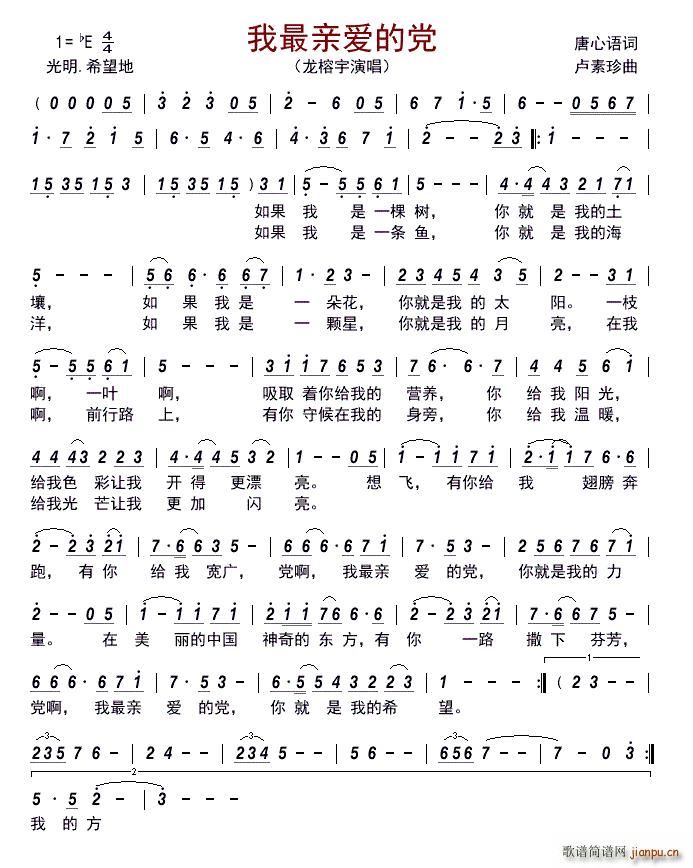 我最亲爱的党
1= ♭E 4/4
唐心语词
光明.希望地
（龙榕宇演唱）
卢素珍曲
( 0 0 0 0 0 5 | 3 2 3 0 0 5 | 2 - 6 0 5 | 6 7 1 · 5 | 6 - - 0 5 6 7 |
1 · 7 2 1 5 | 6 · 5 4 · 6 | 4 · 3 6 6 7 1 | 2 - - 2 3 ‖: 1 - - -
1 5 3 5 1 5 3 | 1 5 3 5 1 5 ) 3 1 | 5 - 5 5 6 1 | 5 - - - | 4 · 4 4 3 2 1 7 1 |
如果 我 是 一棵 树， 你 就 是 我的 土
如果 我 是 一条 鱼， 你 就 是 我的 海
5 - - - | 5 6 6 · 6 6 7 | 1 · 2 3 - | 2 3 4 5 4 5 3 5 | 2 - - 3 1 |
壤， 如 果 我 是 一 朵花， 你就是我 的 太 阳。 一枝
洋， 如 果 我 是 一 颗星， 你就是我 的 月 亮， 在我
5 - 5 5 6 1 | 5 - - - | 3 1 1 7 6 5 3 | 7 6 · 6 · 7 | 4 4 5 6 1 |
啊， 一叶 啊， 吸取 着你给我的 营养， 你 给 我 阳光，
啊， 前行路 上， 有你 守候在我的 身旁， 你 给 我 温暖，
4 4 4 3 2 2 3 | 4 · 4 4 5 5 3 | 1 - - 0 5 | 1 - 1 1 7 1 | 2 · 1 1 7 6 · 6 |
给我色 彩让我 开 得 更漂 亮。 想 飞， 有你给 我 翅膀 奔
给我光 芒让我 更 加 闪 亮。
2 - 2 3 2 1 | 7 · 6 6 3 5 - | 6 6 6 · 6 6 7 1 | 7 · 5 3 - | 2 5 6 7 6 7 7 1 |
跑， 有 你 给 我 宽广， 党啊， 我最亲 爱 的 党， 你就是我的 力
2 - - 0 5 | 1 - 1 1 7 1 | 2 · 1 1 1 7 6 6 | 2 - 2 3 2 1 | 7 · 6 6 3 5 - |
量。 在 美 丽的中国 神奇的 东 方，有 你 一路 撒 下 芬芳，
6 6 6 · 6 6 7 1 | 7 · 5 3 - | 6 · 5 5 4 3 2 2 3 | 1 - - - :‖ ( 2 3 - - |
党啊， 我最亲 爱 的党， 你 就 是 我的 希 望。
2 3 5 7 6 - | 2 2 3 4 5 - | 5 · 5 2 - | 6 5 6 7 - - | 7 - 0 3 :‖
5 · 5 2 - | 3 - - - |
我 的 方
歌谱简谱网
jianpu.cn